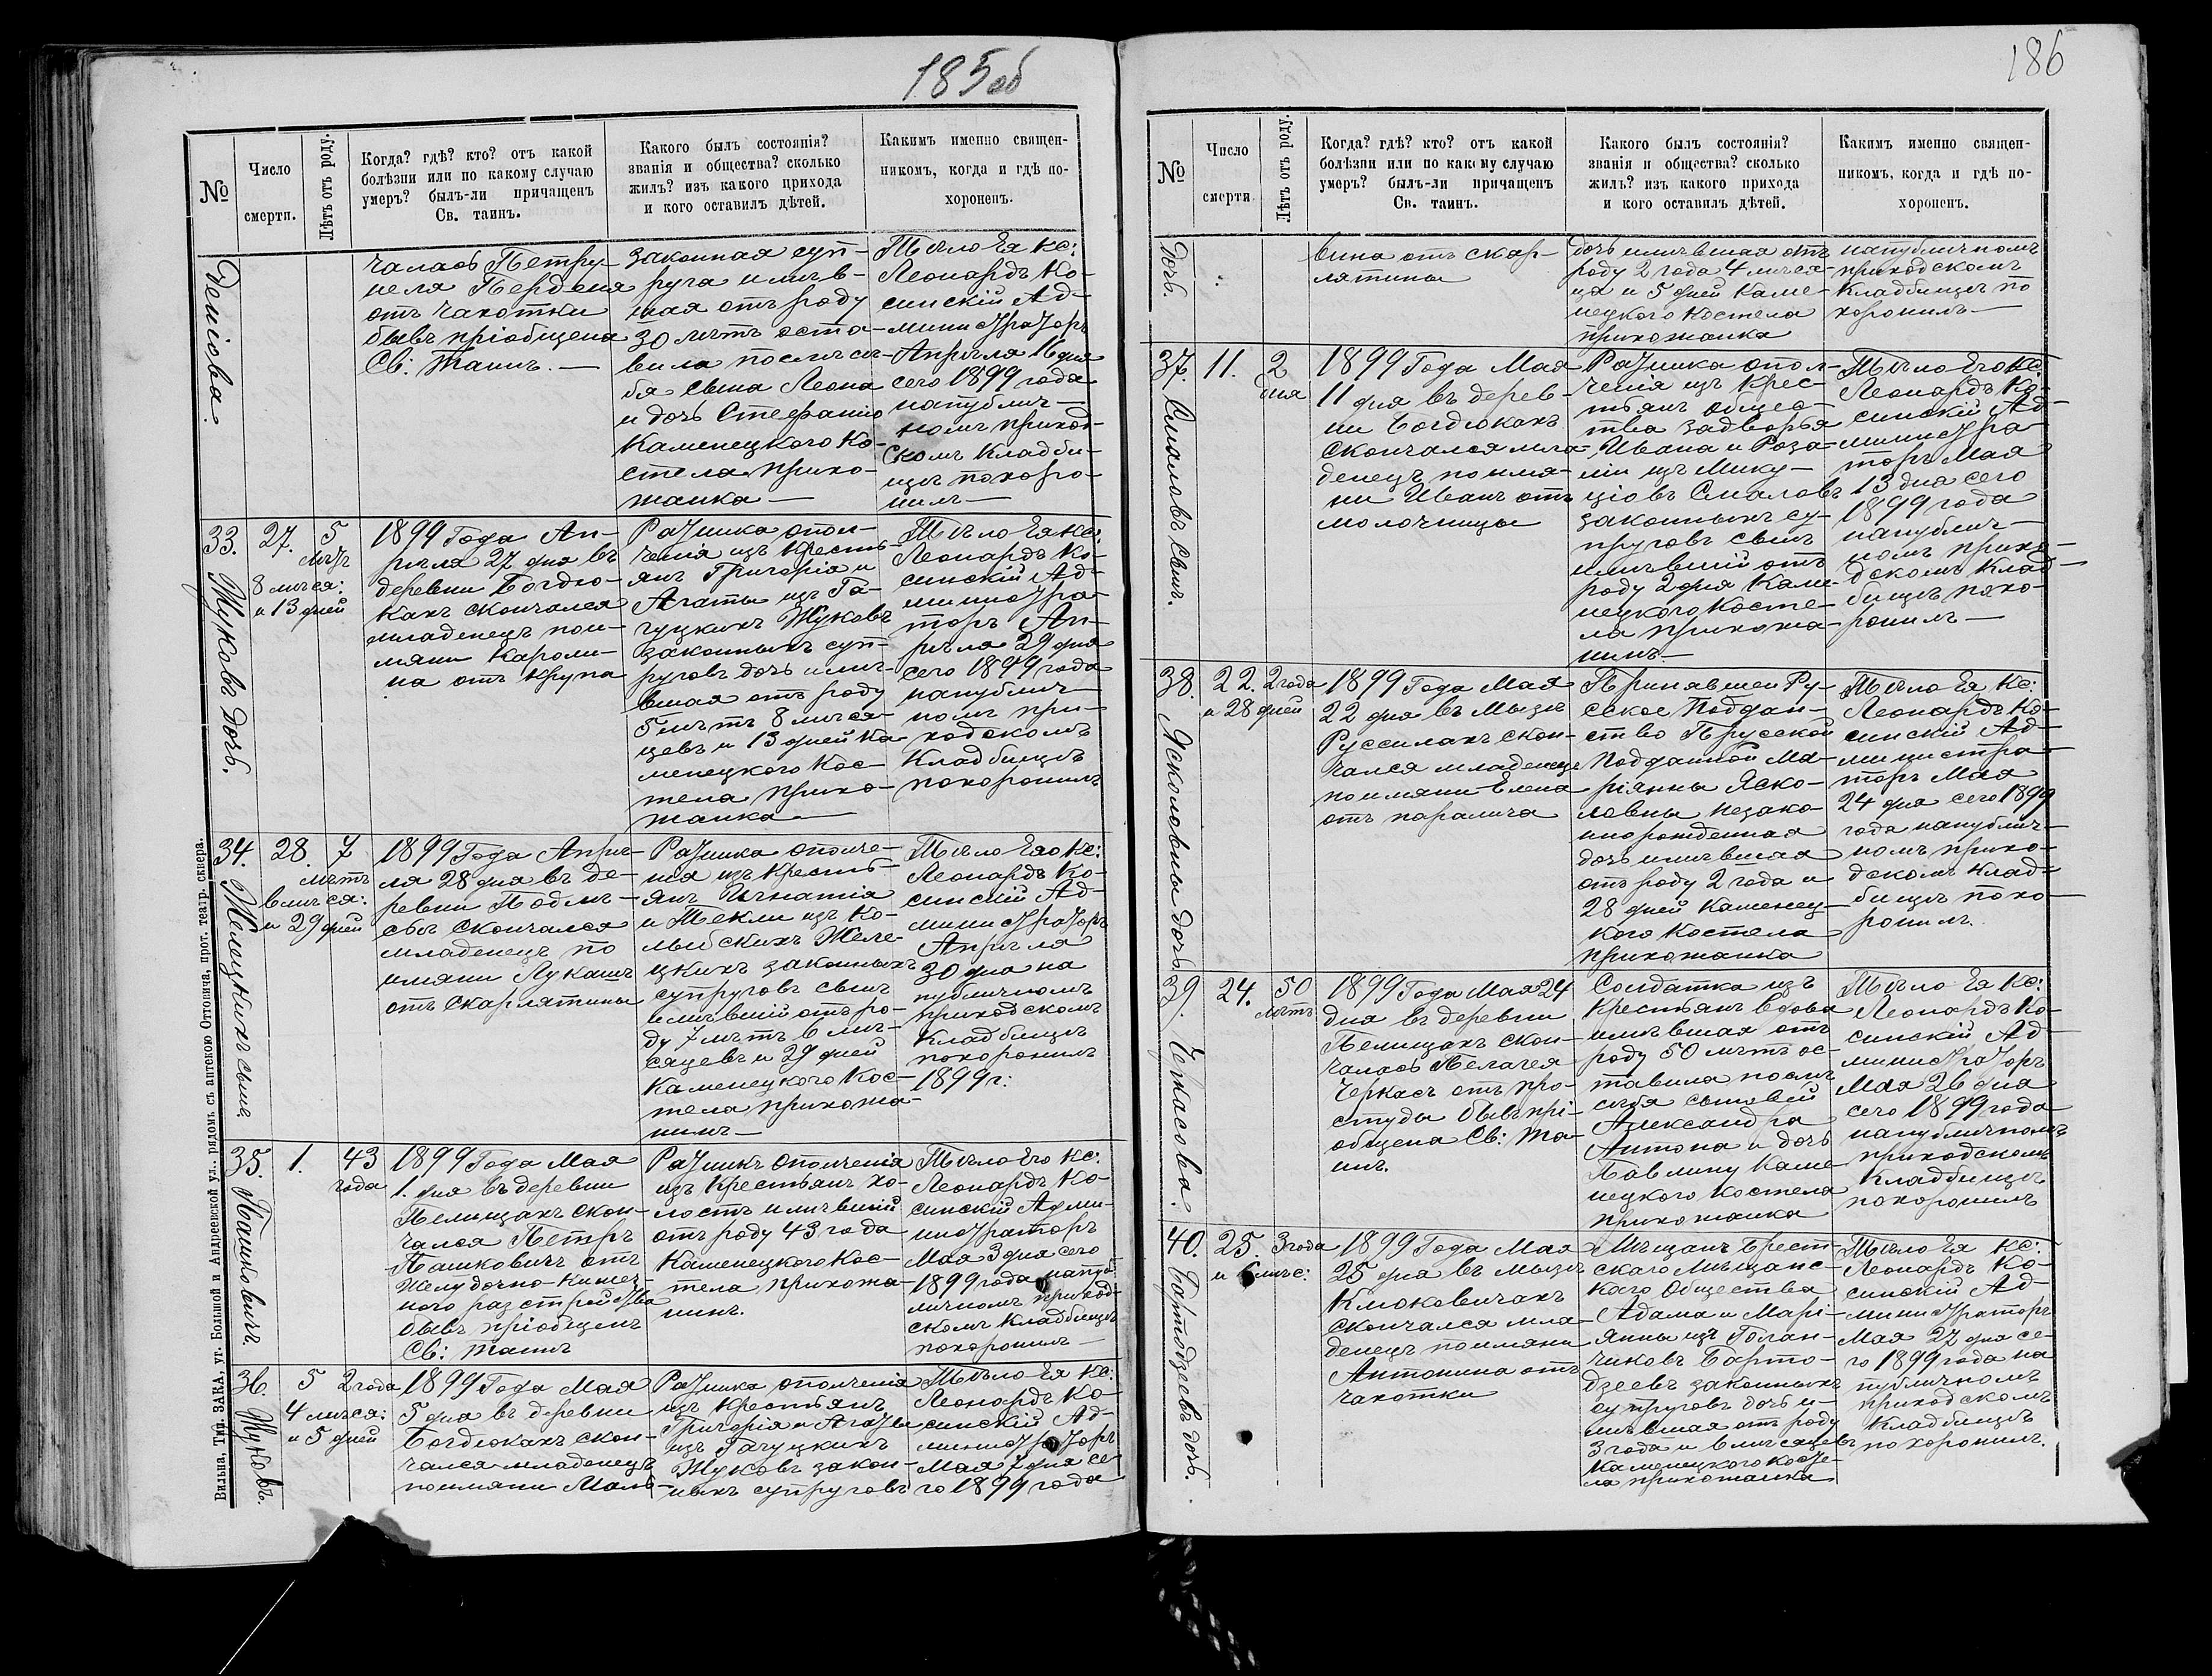 185 об
№
Число
смерти.
Лѣтъ отъ роду.
Когда? гдѣ? кто? отъ какой
болѣзни или по какому случаю
умеръ? былъ-ли причащенъ
Св. таинъ.
Какого былъ состоянія?
званія и общества? сколько
жилъ? изъ какого прихода
и кого оставилъ дѣтей.
Каким именно священ-
никомъ, когда и гдѣ по-
хороненъ.
чалась Петру-
неля
отъ чахотки
бывъ пріобщена
Св: Таинъ. —
законная суп-
руга имѣв-
шая отъ роду
30 лѣтъ оста-
вила послѣ се-
бя сына Леона
и дочь Стефанію
Каменецкого Ко-
стела прихо-
жанка —
Тѣло Ея Кс:
Леонардъ Ко-
синскій Ад-
министраторъ
Апрѣля 16 дня
сего 1899 года
напублич-
номъ приход-
скомъ кладби-
щѣ похоро-
нилъ —
33. Жуковъ дочь.
27.
5
лѣтъ
8 мѣся:
и 13 дней
1899 Года Ап-
рѣля 27 дня въ
деревни Богдю-
кахъ скончался
младенецъ пои-
мяни Кароли-
на отъ крупа
Ратника опол-
ченія изъ кресть-
янъ Григорія и
Агаты изъ Га-
чуцкихъ Жуковъ
законныхъ суп-
руговъ дочь имѣ-
вшая отъ роду
5 лѣтъ 8 мѣся-
цевъ и 13 дней Ка-
менецкого Кос-
тела прихо-
жанка —
Тѣло Ея Кс:
Леонардъ Ко-
синскій Ад-
министра-
торъ Ап-
рѣля 29 дня
сего 1899 года
напублич-
номъ при-
ходскомъ
Кладбищѣ
похоронилъ
34. Желецкихъ сынъ
28.
7
лѣтъ
6 мѣся:
и 29 дней
1899 Года Апрѣ-
ля 28 дня въ де-
ревни Подлѣ-
сьѣ скончался
младенецъ по
имяни Лукашъ
отъ скарлятины
Ратника ополче-
нія изъ кресть-
янъ Игнатія
и Текли изъ Ко-
Желе-
цкихъ законныхъ
супруговъ сынъ
имѣвшій отъ ро-
ду 7 лѣтъ 6 мѣ-
сяцевъ и 29 дней
Каменецкого Кос-
тела прихожа-
нинъ —
Тѣло Его Кс:
Леонардъ Ко-
синскій Ад-
министраторъ
Апрѣля
30 дня на
публичномъ
приходскомъ
Кладбищѣ
похоронилъ
1899 г:
35. Пашковичъ.
1.
43
года
1899 Года Мая
1. дня въ деревни
Пелищахъ скон-
чался Петръ
Пашковичъ отъ
желудочно-кишеч-
ного разстройства
бывъ пріобщенъ
Св: Таинъ
Ратникъ ополченія
изъ крестьянъ хо-
лостъ имѣвшій
отъ роду 43 года
Каменецкого Кос-
тела прихожа-
нинъ.
Тѣло Его Кс:
Леонардъ Ко-
синскій Адми-
нистраторъ
Мая 3 дня сего
1899 года напуб-
личномъ приход-
скомъ Кладбищѣ
похоронилъ —
36. Жуковъ.
5
2 года
4 мѣся:
и 5 дней
1899 Года Мая
5 дня въ деревни
Богдюкахъ скон-
чался младенецъ
поимяни
Ратника ополченія
изъ крестьянъ
Григорія и Агаты
изъ Гачуцкихъ
Жуковъ закон-
ныхъ супруговъ
Тѣло Ея Кс:
Леонардъ Ко-
синскій Ад-
министраторъ
Мая 7 дня се-
го 1899 года
Вильна, Тип. ЗАКА, уг. Большой и Андреевской ул., рядомъ съ аптекою Оттовича, прот. театр. сквера.
186
№
Число
смерти
Лѣтъ отъ роду.
Когда? гдѣ? кто? отъ какой
болѣзни или по какому случаю
умеръ? былъ-ли причащенъ
Св. таинъ.
Какого былъ состоянія?
званія и общества? сколько
жилъ? изъ какого прихода
и кого оставилъ дѣтей.
Каким именно священ-
никомъ, когда и гдѣ по-
хороненъ.
дочь.
вина отъ скар-
лятины
дочь имѣвшая отъ
роду 2 года 4 мѣся-
ца и 5 дней Каме-
нецкого Костела
прихожанка
напубличномъ
приходскомъ
Кладбищѣ по
хоронилъ —
37. Смаловъ сынъ.
11.
2
дня
1899 Года Мая
11 дня въ дерев-
ни Богдюкахъ
скончался мла-
денецъ поимя-
ни Иванъ отъ
молочницы
Ратника опол-
ченія изъ крес-
тьянъ общес-
тва Задворья
Ивана и Роза-
ліи изъ Мику-
ціовъ Смаловъ
законныхъ су-
пруговъ сынъ
имѣвшій отъ
роду 2 дня Каме-
нецкого Косте-
ла прихожа-
нинъ —
Тѣло Его Кс:
Леонардъ Ко-
синскій Ад-
министра-
торъ Мая
13 дня сего
1899 года
напублич-
номъ прихо-
дскомъ Клад-
бищѣ похо-
ронилъ —
38. Ясколовны дочь
22.
2 года
и 28 дней
1899 Года Мая
22 дня въ Мызѣ
Руссилахъ скон-
чался младенецъ
поимяни Елена
отъ паралича
Принявшей Ру-
сское Поддан-
ство Прусской
Подданной Ма-
ріянны Яско-
ловны незако-
ннорожденная
дочь имѣвшая
отъ роду 2 года и
28 дней Каменец-
кого Костела
прихожанка
Тѣло Ея Кс:
Леонардъ Ко-
синскій Ад-
министра-
торъ Мая
24 дня сего 1899
года напублич-
номъ прихо-
дскомъ Клад-
бищѣ похо-
ронилъ.
39. Черкасова.
24.
50
лѣтъ
1899 Года Мая 24
дня въ деревни
Пелищахъ скон-
чалась Пелагея
Черкасъ отъ про-
студы бывъ прі-
общена Св: Та-
инъ.
Солдатка изъ
крестьянъ вдова
имѣвшая отъ
роду 50 лѣтъ ос-
тавила послѣ
себя сыновей
Александра
Антона и дочь
Павлину Каме-
нецкого Костела
прихожанка
Тѣло Ея Кс:
Леонардъ Ко-
синскій Ад-
министраторъ
Мая 26 дня
сего 1899 года
напубличномъ
приходскомъ
Кладбищѣ
похоронилъ
40. Бартодзеевъ дочь.
25.
3 года
и 6 мѣс:
1899 Года Мая
25 дня въ Мызѣ
Клюковичахъ
скончался мла-
денецъ поимяни
Антонина отъ
чахотки
Мѣщанъ Брест-
ского Мѣщанс-
кого Общества
Адама и Марі-
янны изъ Голан-
чиковъ Барто-
дзеевъ законныхъ
супруговъ дочь и-
мѣвшая отъ роду
3 года и 6 мѣсяцевъ
Каменецкого Косте-
ла прихожанка
Тѣло Ея Кс:
Леонардъ Ко-
синскій Ад-
министраторъ
Мая 27 дня се-
го 1899 года на
публичномъ
приходскомъ
Кладбищѣ
похоронилъ.